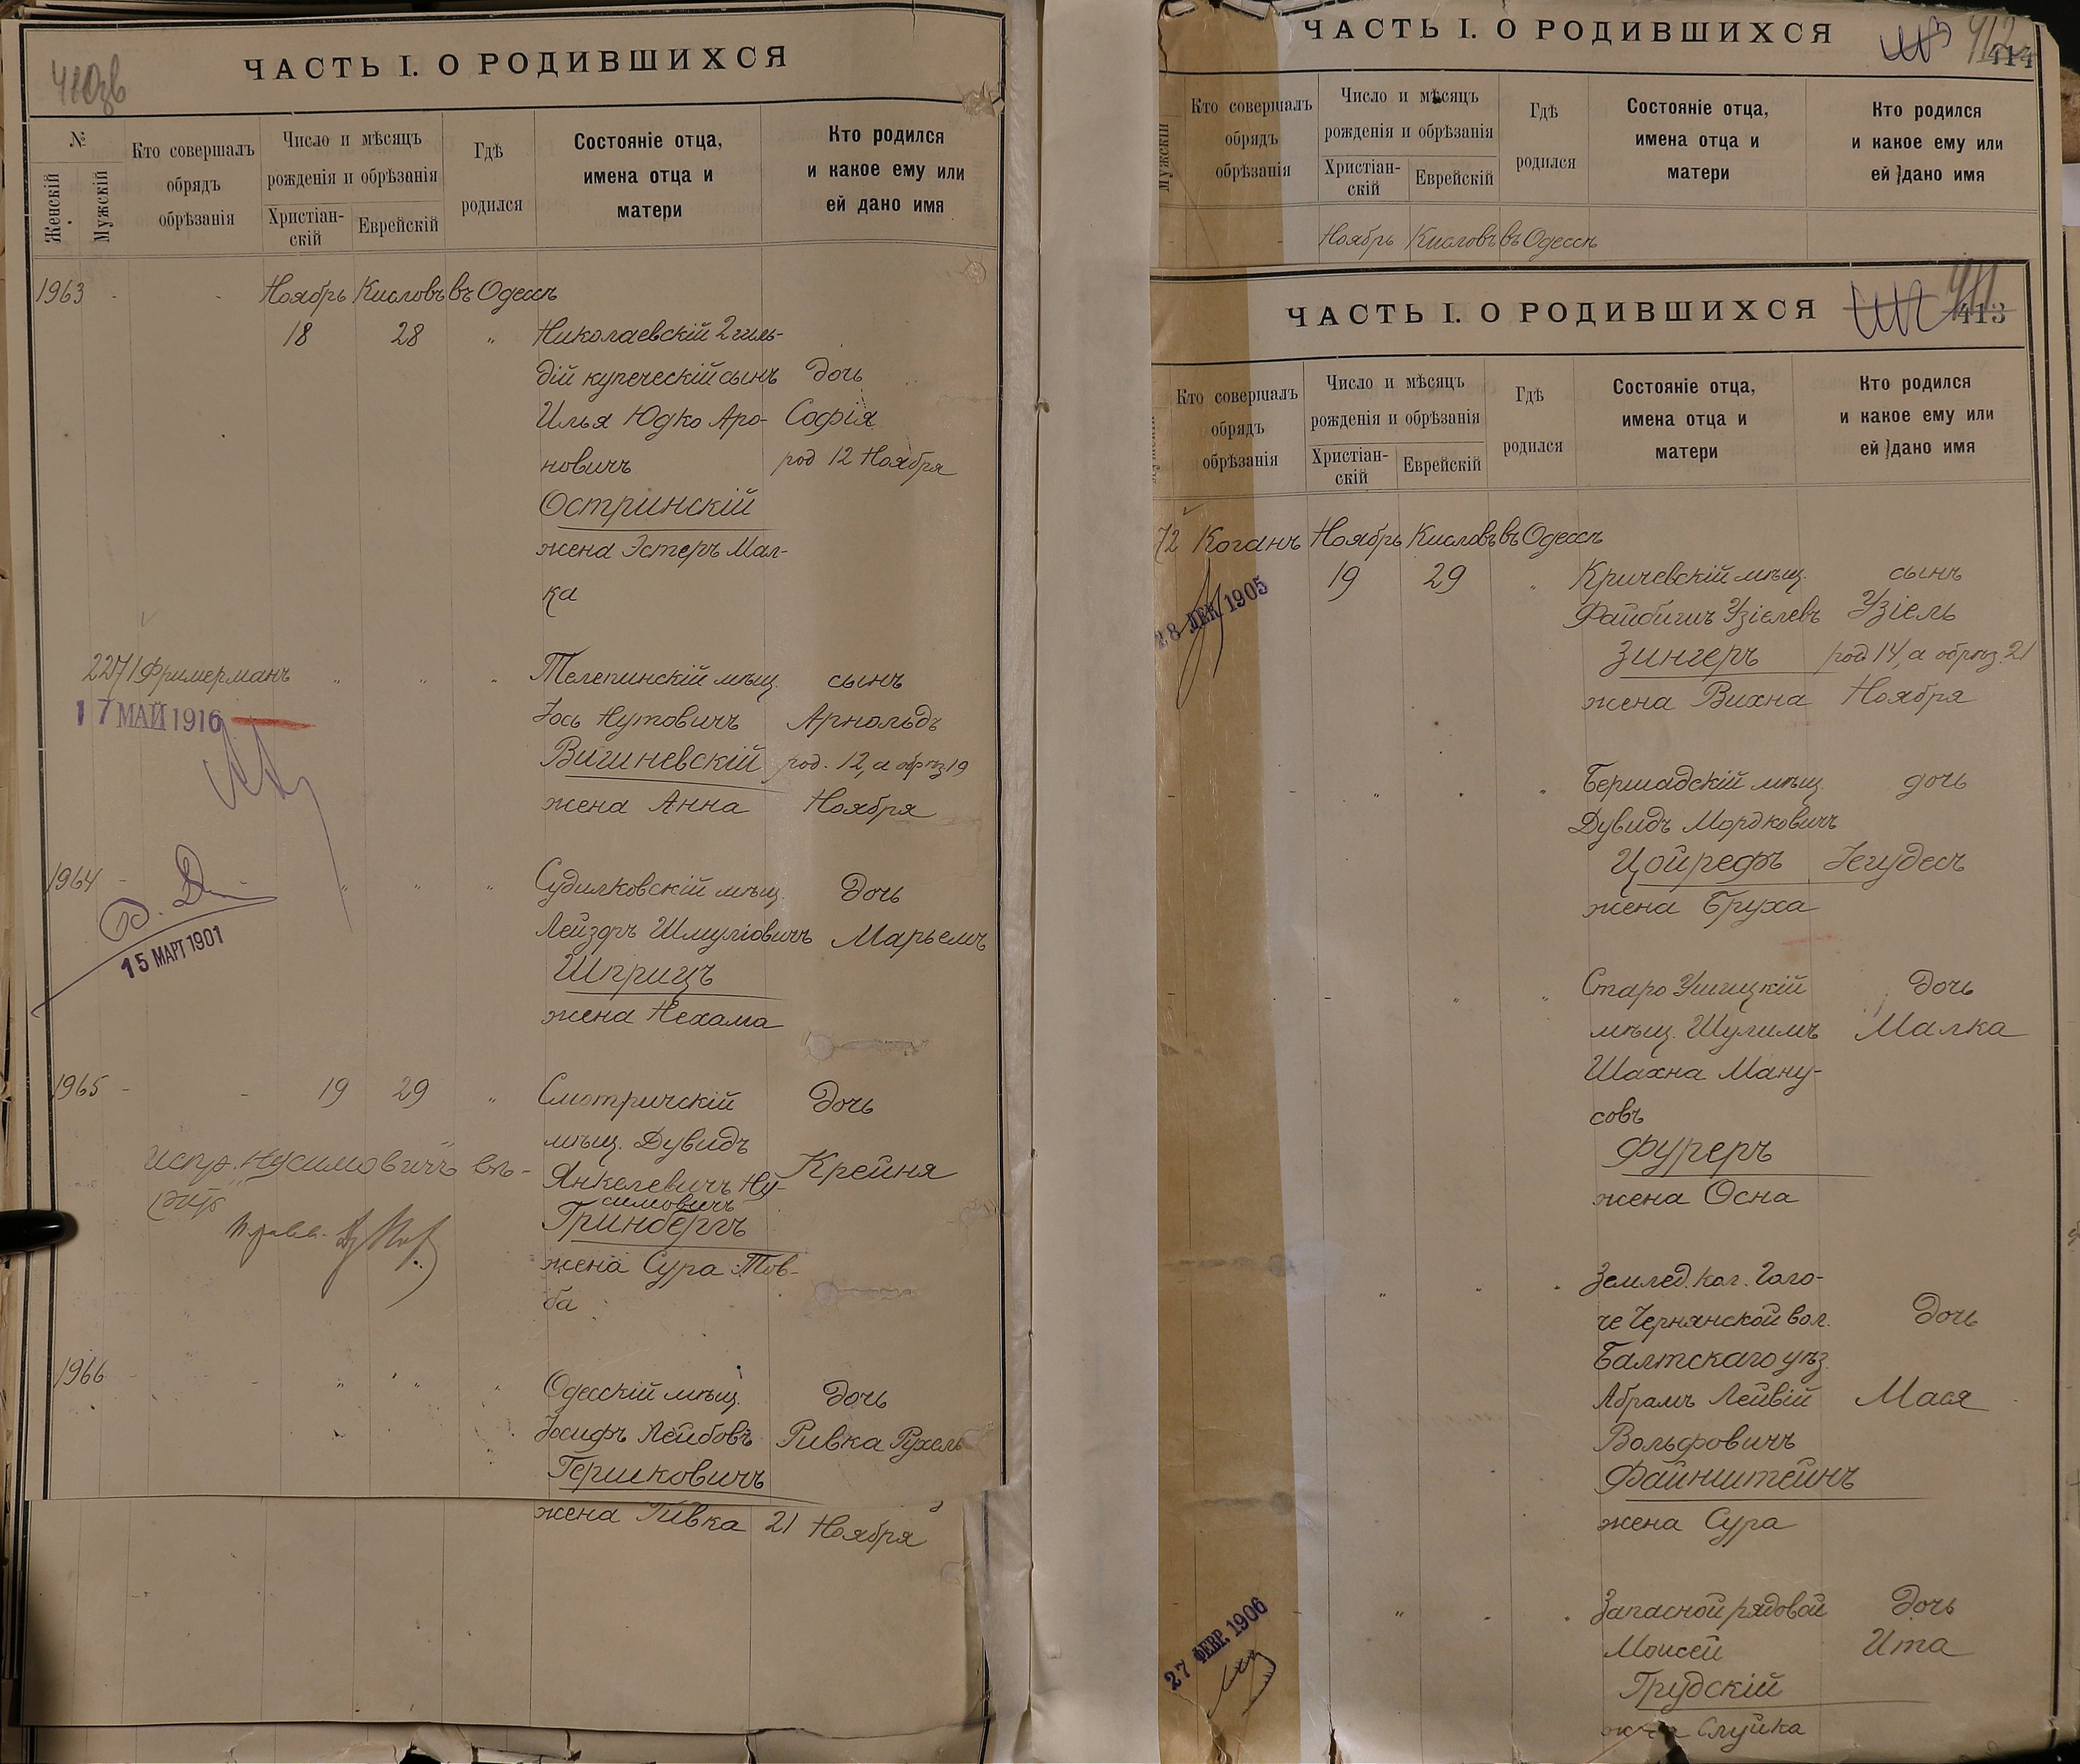 ЧАСТЬ I. О РОДИВШИХСЯ
№
Женскій
Мужскій
Кто совершалъ
обрядъ
обрѣзанія
Число и мѣсяцъ
рожденія и обрѣзанія
Христіан-
скій
Еврейскій
Гдѣ
родился
Состояніе отца,
имена отца и
матери
Кто родился
и какое ему или
ей дано имя
1963 Ноябрь Кисловъ въ Одессѣ
18 28 " Николаевскій 2 гиль-
дій купеческій сынъ дочь
Илья Юдко Аро- Софія
новичъ род 12 Ноября
Остринскій
жена Эстеръ Мал-
ка
2271 Фримерманъ " " " Телепинскій мѣщ. сынъ
17 МАЙ 1916
Іось Нутовичъ Арнольдъ
Вишневскій род. 12, а обрѣз 19
жена Анна Ноября
1964 " " " Судилковскій мѣщ. Дочь
Лейзоръ Шмуліовичъ Марьемъ
15 МАРТ 1901
Шприцъ
жена Нехама
1965 19 29 " Смотричскій Дочь
мѣщ. Дувидъ
Янкелевичъ Ну- Крейня
симовичъ
Гринбергъ
жена Сура Тов-
ба
1966 " " " Одесскій мѣщ. Дочь
Іосифъ Лейбовъ Ривка Рухель
Гершковичъ
жена Ривка 21 Ноября
ЧАСТЬ I. О РОДИВШИХСЯ
412
414
Мужскій
Кто совершалъ
обрядъ
обрѣзанія
Число и мѣсяцъ
рожденія и обрѣзанія
Христіан-
скій
Еврейскій
Гдѣ
родился
Состояніе отца,
имена отца и
матери
Кто родился
и какое ему или
ей дано имя
Ноябрь Кисловъ въ Одессѣ
ЧАСТЬ I. О РОДИВШИХСЯ
411
413
Кто совершалъ
обрядъ
обрѣзанія
Число и мѣсяцъ
рожденія и обрѣзанія
Христіан-
скій
Еврейскій
Гдѣ
родился
Состояніе отца,
имена отца и
матери
Кто родился
и какое ему или
ей дано имя
72 Коганъ Ноябрь Кисловъ въ Одессѣ
19 29 " Кричевскій мѣщ. сынъ
28 ДЕК 1905
Файбишъ Узіелевъ Узіель
Зингеръ род 14, а обрѣз. 21
жена Вихна Ноября
" " " Бершадскій мѣщ. дочь
Дувидъ Мордковичъ
Цойрефъ Іегудесъ
жена Бруха
" " Старо Ушицкій Дочь
мѣщ. Шулимъ Малка
Шахна Ману-
совъ
Фуреръ
жена Осна
" " " Землед. кол. Голо-
че Чернянской вол. Дочь
Балтскаго уѣз.
Абрамъ Лейвій Мася
Вольфовичъ
Файнштейнъ
жена Сура
" " " Запасной рядовой Дочь
27 ФЕВР. 1906
Моисей Ита
Грудскій
жена Слуйка